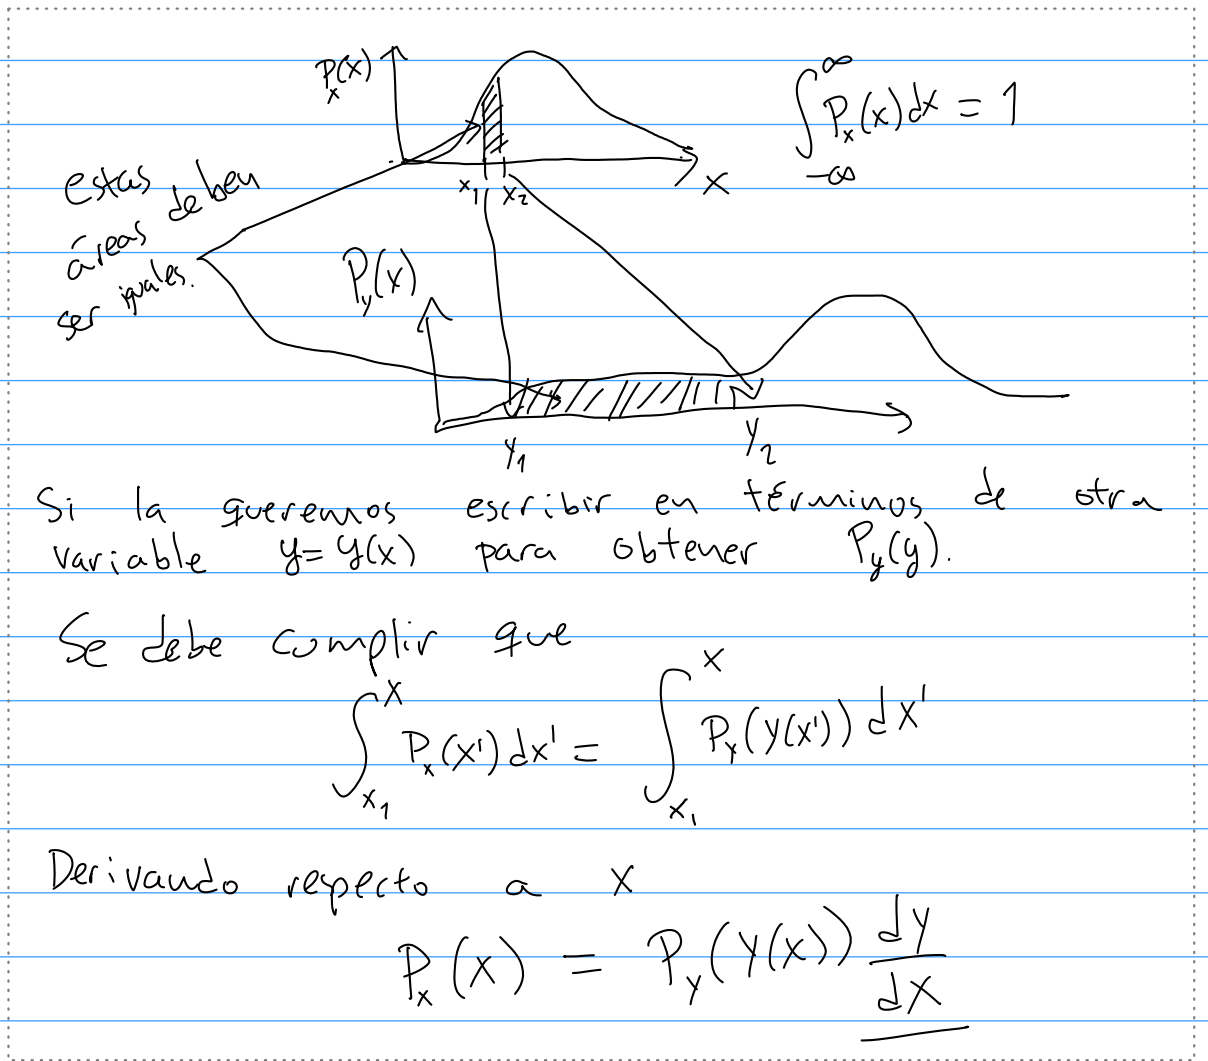 Pₓ(x)
∫_{-∞}^{∞} Pₓ(x) dx = 1
x
x₁ x₂
estas
áreas deben
ser iguales.
P_y(x)
y₁ y₂
Si la queremos escribir en términos de otra
variable y = y(x) para obtener P_y(y).
Se debe cumplir que
∫_{x₁}^{x} Pₓ(x') dx' = ∫_{x₁}^{x} P_y(y(x')) dx'
Derivando respecto a x
Pₓ(x) = P_y(y(x)) dy/dx